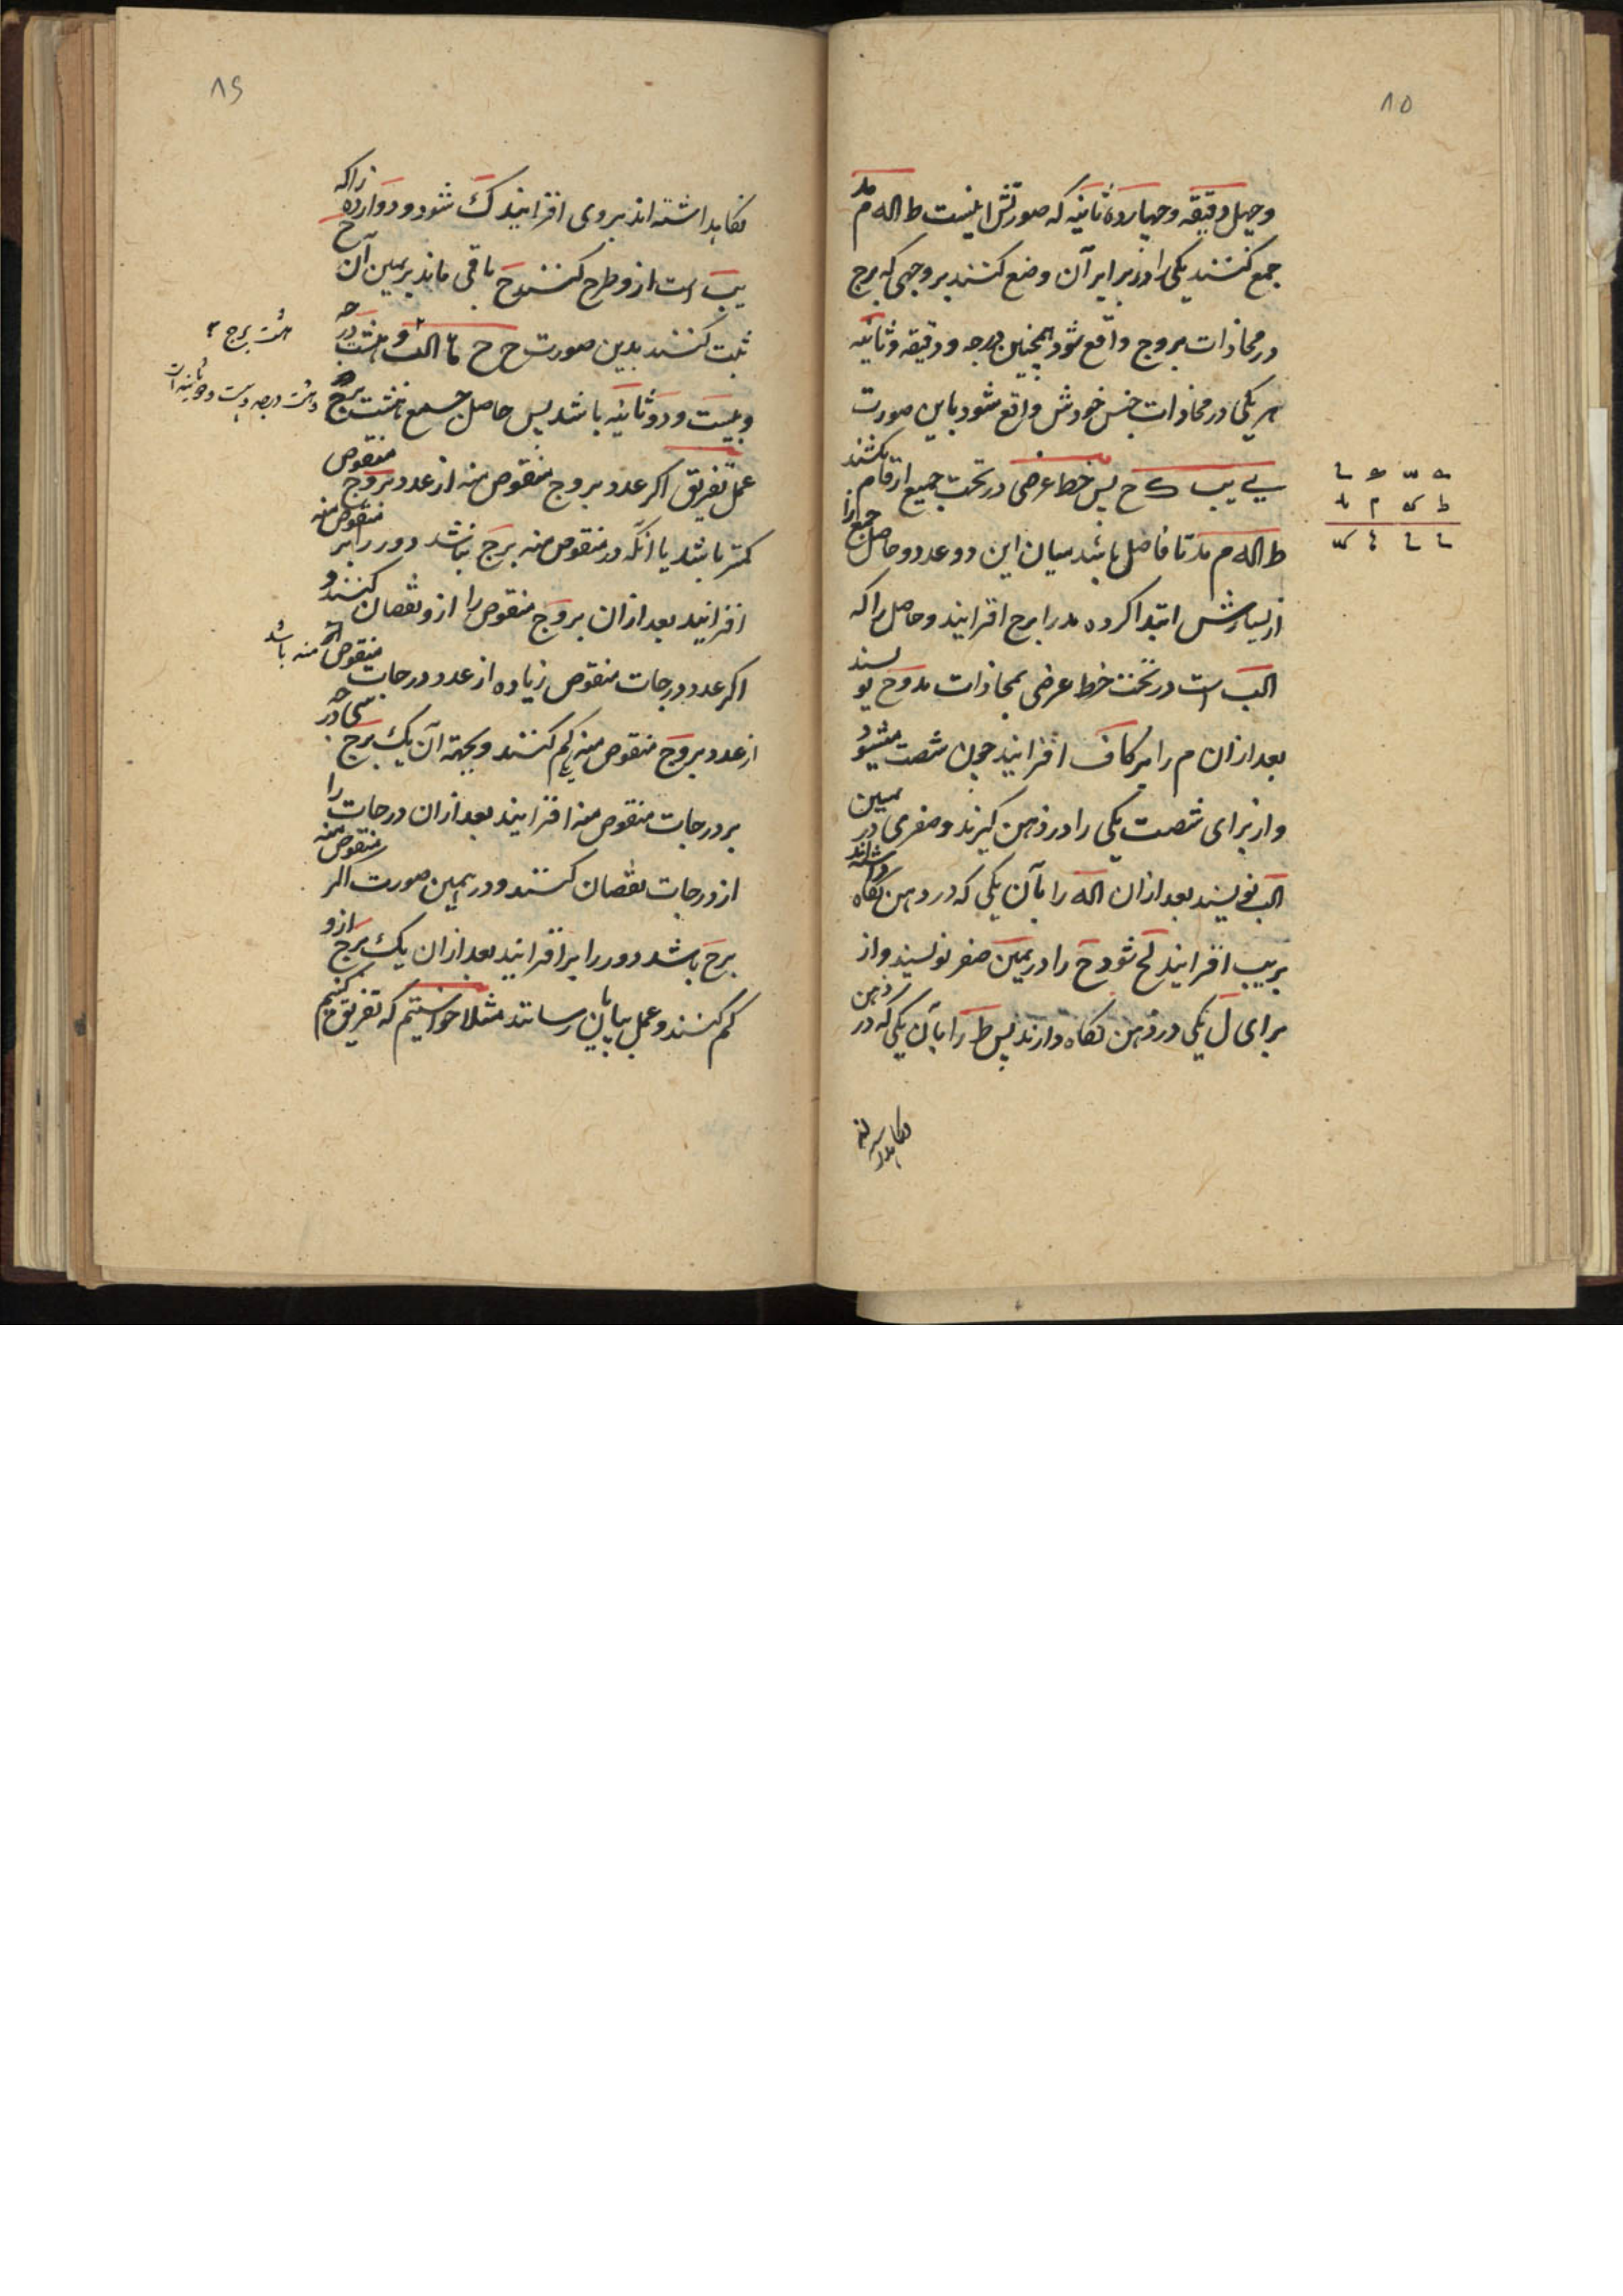 ۸۵
وچهل دقیقه وچهارده ثانیه که صورتش اینست ط اله م مد
جمع کنند یکی را در برابر آن وضع کنند بروجهی که برج
در محاذات بروج واقع شود همچنین درجه ودقیقه وثانیه
هر یکی در محاذات جنس خودش واقع شود باین صورت
یے یب ک ح پس خط عرضی در تحت جمیع ارقام بکشند
ط اله م مد تا فاصل باشد میان این دو عدد وحاصل جمع از
از یسارش ابتدا کرده مد را برح افزایند وحاصل را که
الب است در تحت خط عرضی بمحاذات مد وح نویسند
بعد ازان م را بر کاف افزایند چون شصت میشود
واز برای شصت یکی را در ذهن گیرند وصفری در یمین
الب نویسند بعد ازان اله را بآن یکی که در ذهن نگاه داشته اند
بریب افزایند لح شود ح را در یمین صفر نویسند واز
برای ل یکی در ذهن نگاه دارند پس ط را بآن یکی که در ذهن
نگاهداشته
۸۶
نگاهداشته اند بروی افزایند ک شود ودوازده را که
یب است ازو طرح کنند ح باقی ماند بر یمین آن ح
ثبت کنند بدین صورت ح ح الب وهشت درجه
وبیست ودو ثانیه باشد پس حاصل جمع هشت برج
هشت برج
وهشت درجه وبیست ودو ثانیه است
عمل تفریق اکر عدد بروج منقوص منه از عدد بروج منقوص
کمتر باشد یا آنکه در منقوص منه برج نباشد دور را بر منقوص منه
افزایند بعد ازان بروج منقوص را ازو نقصان کنند و
اکر عدد درجات منقوص زیاده از عدد درجات منقوص منه باشد
از عدد بروج منقوص منه یکی کم کنند وبجهة آن یک برج سی درجه
بر درجات منقوص منه افزایند بعد ازان درجات را
از درجات نقصان کنند ودر همین صورت اکر منقوص منه
برج باشد دور را بر افزایند بعد ازان یک برج ازو
کم کنند وعمل بپایان رسانند مثلا خواستیم که تفریق کنیم